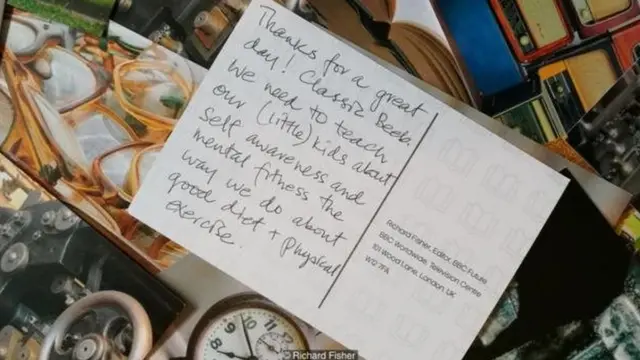 Thanks for a great
day! Classic Beeb.
We need to teach
our (little) kids about
self awareness and
mental fitness the
way we do about
good diet + physical
exercise.
Richard Fisher, Editor, BBC Future
BBC Worldwide, Television Centre
101 Wood Lane, London, UK
W12 7FA
© Richard Fisher